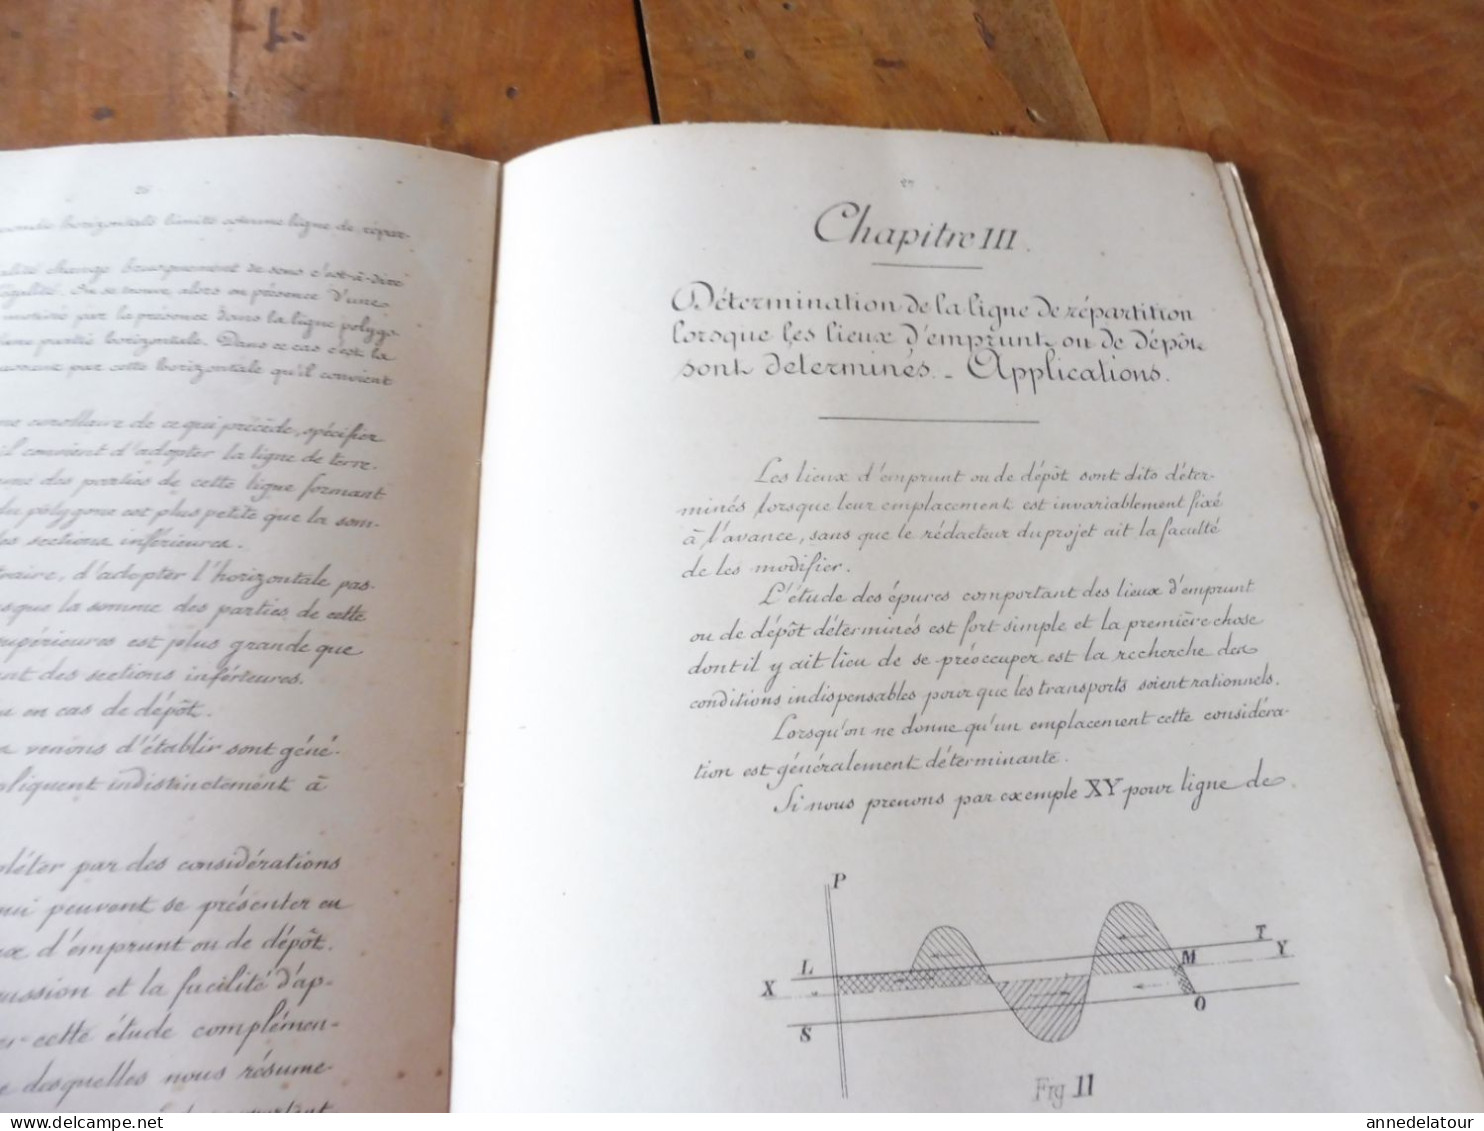 26
horizontale limite comme ligne de répar-
alité change brusquement de sens c'est-à-dire
égalité. On se trouve alors en présence d'une
par la présence dans la ligne polygo-
d'une partie horizontale. Dans ce cas c'est la
par cette horizontale qu'il convient
me corollaire de ce qui précède, spécifier
il convient d'adopter la ligne de terre
me des parties de cette ligne formant
du polygone est plus petite que la som-
des sections inférieures.
traire, d'adopter l'horizontale pas-
sque la somme des parties de cette
supérieures est plus grande que
ant des sections inférieures.
u en cas de dépôt.
venons d'établir sont géné-
pliquent indistinctement à
pléter par des considérations
qui peuvent se présenter en
ux d'emprunt ou de dépôt.
cussion et la facilité d'ap-
er cette étude complémen-
desquelles nous résume-
27
Chapitre III.
Détermination de la ligne de répartition
lorsque les lieux d'emprunt ou de dépôt
sont déterminés. - Applications.
Les lieux d'emprunt ou de dépôt sont dits déter-
minés lorsque leur emplacement est invariablement fixé
à l'avance, sans que le rédacteur du projet ait la faculté
de les modifier.
L'étude des épures comportant des lieux d'emprunt
ou de dépôt déterminés est fort simple et la première chose
dont il y ait lieu de se préoccuper est la recherche des
conditions indispensables pour que les transports soient rationnels.
Lorsqu'on ne donne qu'un emplacement cette considéra-
tion est généralement déterminante.
Si nous prenons par exemple XY pour ligne de
P
T
L
M
Y
X
O
S
Fig 11
delcampe.net
annedelatour